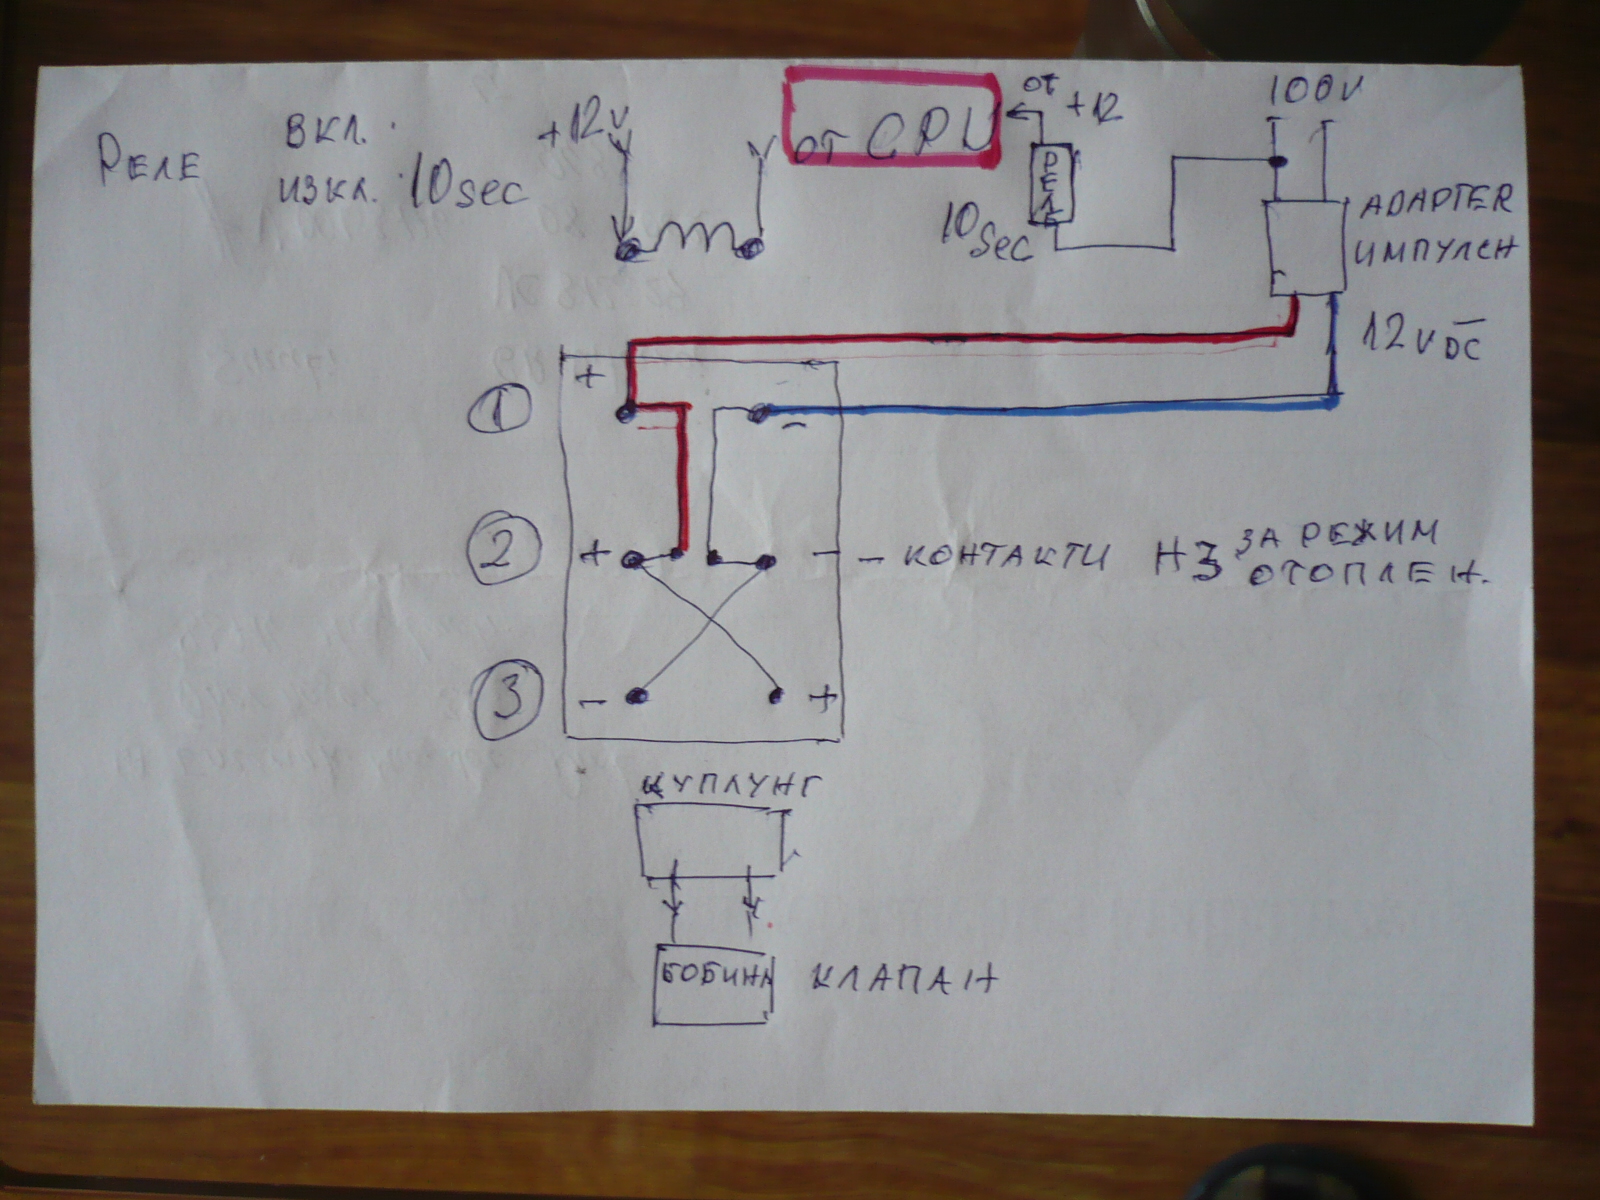 РЕЛЕ
ВКЛ.
ИЗКЛ. 10 sec
+12v
от CPU
от
+12
РЕЛЕ
10 sec
100V
ADAPTER
ИМПУЛСН
12v DC
+
1
−
2
+
− – КОНТАКТИ НЗ ЗА РЕЖИМ
ОТОПЛЕН.
3
−
+
КУПЛУНГ
БОБИНА КЛАПАН